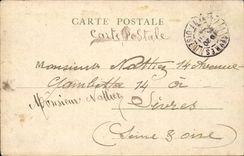 CARTE POSTALE
Carte Postale
Monsieur Nollier 14 Avenue
Gambetta 14 à
Monsieur Nollier
Sèvres
Seine & Oise